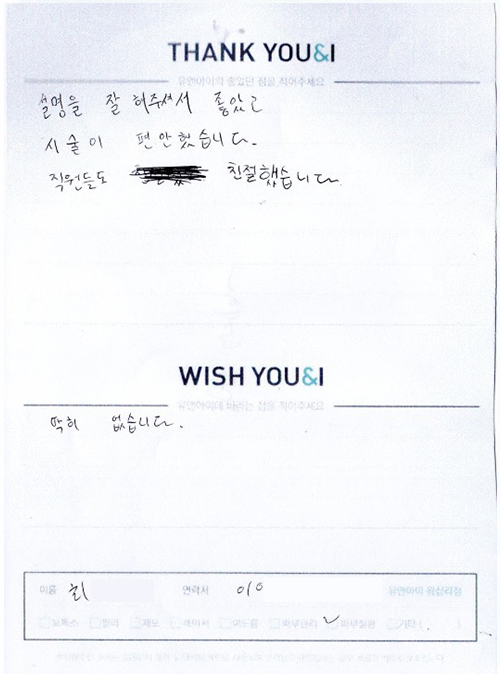 THANK YOU&I
유앤아이의 좋았던 점을 적어주세요
설명을 잘 해주셔서 좋았고
시술이 편안했습니다.
직원들도 친절했습니다.
WISH YOU&I
유앤아이에 바라는 점을 적어주세요
딱히 없습니다.
이름 최 연락처 010 유앤아이 왕십리점
보톡스 필러 제모 레이저 여드름 피부관리 피부질환 기타 ( )